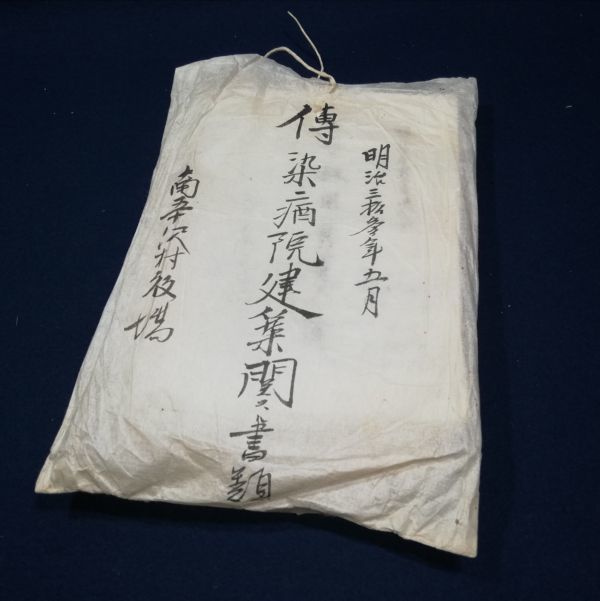 明治三拾参年五月
傳染病院建築関書類
南五十沢村役場